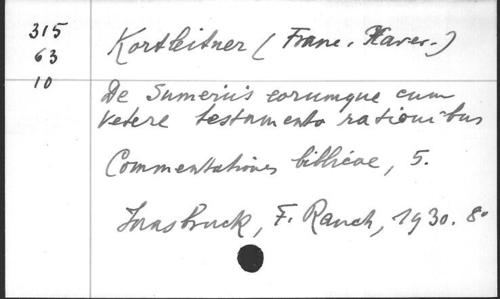 315
63
10
Kortleitner (Franc. Xaver.)
De Sumeriis eorumque cum
vetere testamento rationibus
Commentationes biblicae, 5.
Innsbruck, F. Rauch, 1930. 8°